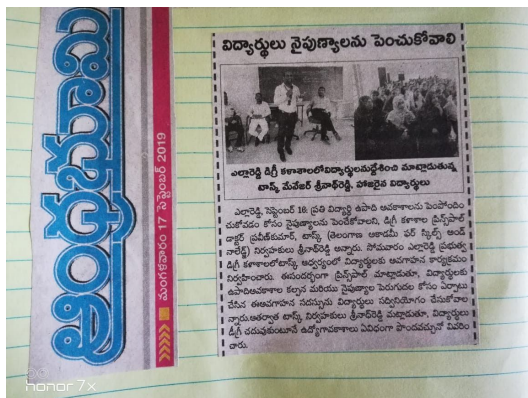 ఆంధ్రభూమి
మంగళవారం 17 సెప్టెంబర్ 2019
విద్యార్థులు నైపుణ్యాలను పెంచుకోవాలి
ఎల్లారెడ్డి డిగ్రీ కళాశాలలోవిద్యార్థులనుద్దేశించి మాట్లాడుతున్న
టాస్క్ మేనేజర్ శ్రీనాథ్‌రెడ్డి, హాజరైన విద్యార్థులు
ఎల్లారెడ్డి, సెప్టెంబర్ 16: ప్రతి విద్యార్థి ఉపాధి అవకాశాలను పెంపొందిం
చుకోవడం కోసం నైపుణ్యాలను పెంచుకోవాలని, డిగ్రీ కళాశాల ప్రిన్సిపాల్
డాక్టర్ ప్రవీణ్‌కుమార్, టాస్క్ (తెలంగాణ అకాడమీ ఫర్ స్కిల్స్ అండ్
నాలెడ్జ్) నిర్వహకులు శ్రీనాథ్‌రెడ్డి అన్నారు. సోమవారం ఎల్లారెడ్డి ప్రభుత్వ
డిగ్రీ కళాశాలలోటాస్క్ ఆధ్వర్యంలో విద్యార్థులకు అవగాహన కార్యక్రమం
నిర్వహించారు. ఈసందర్భంగా ప్రిన్సిపాల్ మాట్లాడుతూ, విద్యార్థులకు
ఉపాధిఅవకాశాల కల్పన మరియు నైపుణ్యాల పెరుగుదల కోసం ఏర్పాటు
చేసిన ఈఅవగాహన సదస్సును విద్యార్థులు సద్వినియోగం చేసుకోవాల
న్నారు.ఆతర్వాత టాస్క్ నిర్వహకులు శ్రీనాథ్‌రెడ్డి మాట్లాడుతూ, విద్యార్థులు
డిగ్రీ చదువుకుంటూనే ఉద్యోగావకాశాలు ఏవిధంగా పొందవచ్చునో వివరిం
చారు.
honor 7x